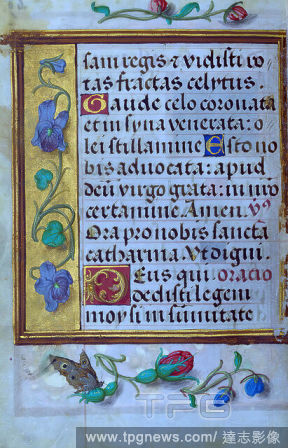 sam regis ⁊ vidisti ro
tas fractas celytus.
Gaude celo coronata
et in syna venerata: o
lei stillamine Esto no
bis advocata: apud
deū virgo grata: in mo
certamine. Amen. v̄s
Ora pro nobis sancta
catharina. Vt digni.
Deus qui oratio
dedisti legem
moysi in sumitate
TPG
www.tpgnews.com/達志影像